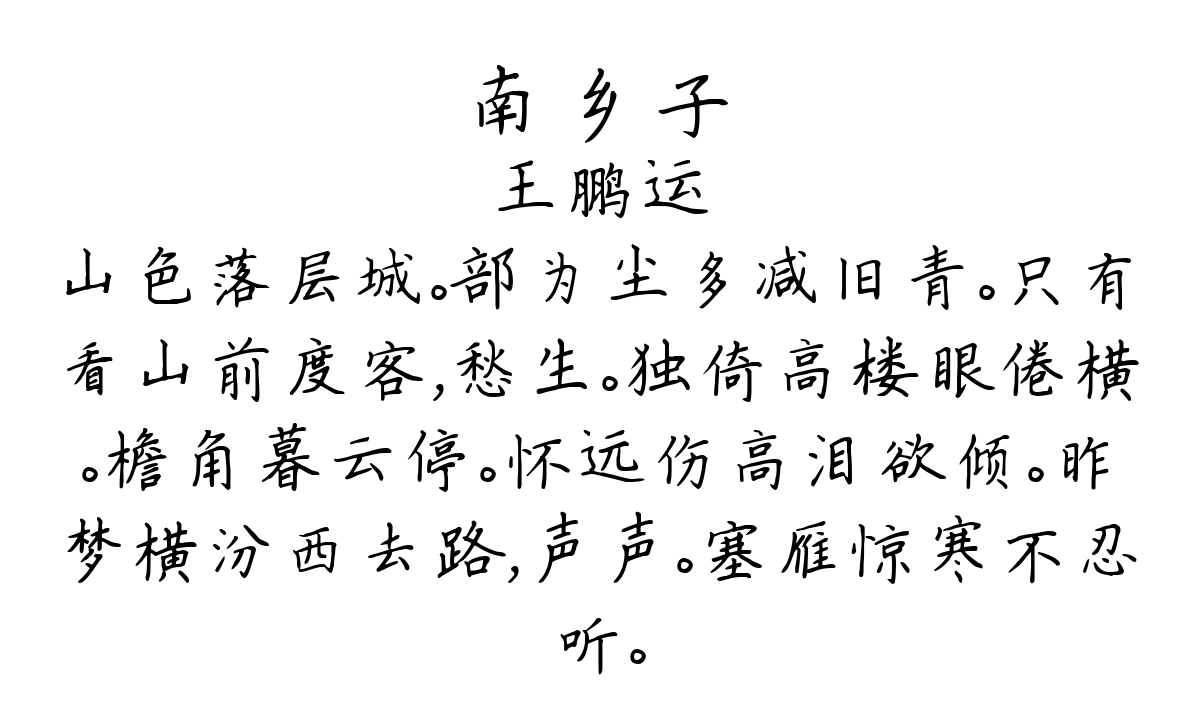 南乡子
王鹏运
山色落层城。部为尘多减旧青。只有
看山前度客,愁生。独倚高楼眼倦横
。檐角暮云停。怀远伤高泪欲倾。昨
梦横汾西去路,声声。塞雁惊寒不忍
听。